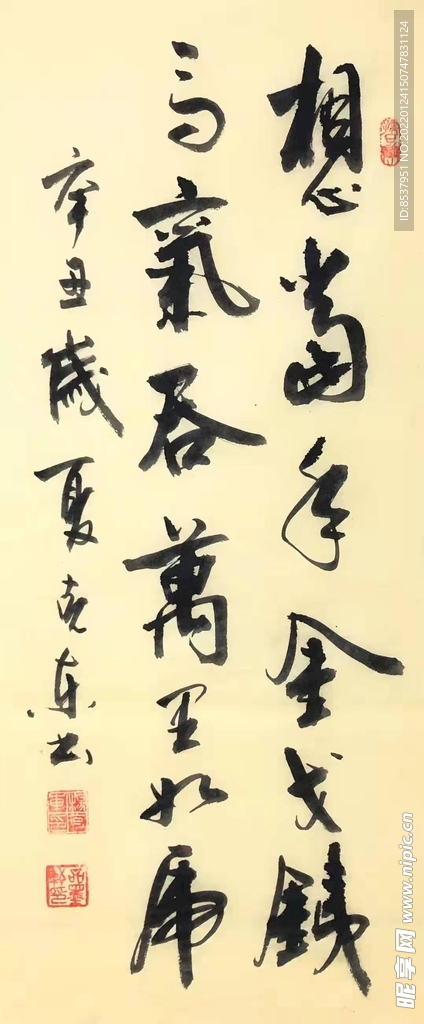 想當年金戈鐵
马氣吞萬里如虎
辛丑歲夏克东书
ID:8537951 NO:20220124150747831124
昵享网 www.nipic.cn